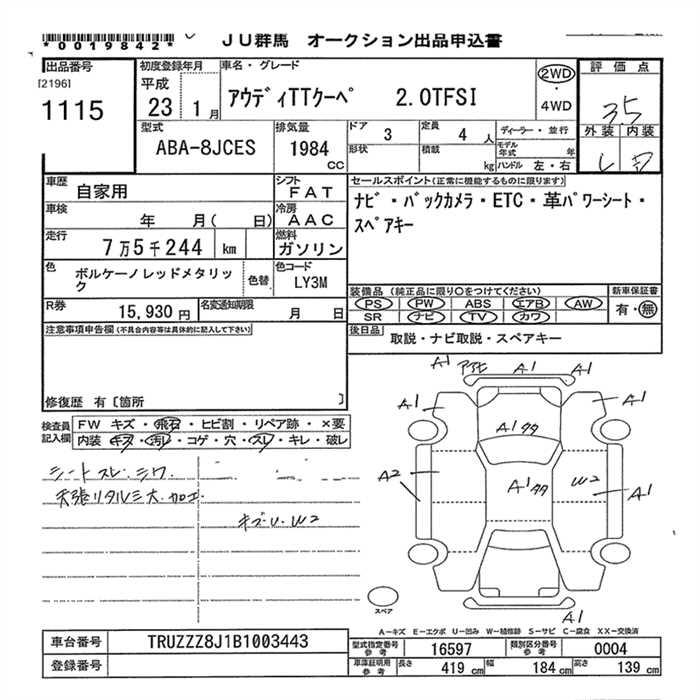 *0019842*
JU群馬 オークション出品申込書
出品番号
[2196]
1115
初度登録年月
平成
23 1月
車名・グレード
アウディTTクーペ 2.0TFSI
2WD
・
4WD
評価点
3.5
外装 内装
型式
ABA-8JCES
排気量
1984
CC
ドア 3
定員 4 人
形状
積載 kg
ディーラー・並行
モデル年式 年
ハンドル 左・右
車歴
自家用
シフト
FAT
車検
年 月( 日)
冷房
AAC
走行
7万5千244 km
燃料
ガソリン
色
ボルケーノレッドメタリック
色替
色コード
LY3M
R券
15,930円
名変通知期限
月 日
セールスポイント(正常に機能するものに限ります)
ナビ・バックカメラ・ETC・革パワーシート・
スペアキー
装備品(純正品に限り○をつけてください)
PS PW ABS エアB AW
SR ナビ TV カワ
新車保証書
有・無
後日品
取説・ナビ取説・スペアキー
注意事項申告欄(不具合内容等は具体的に記入して下さい)
修復歴 有〔箇所 〕
検査員
記入欄
FW キズ・飛石・ヒビ割・リペア跡・×要
内装 キズ・汚レ・コゲ・穴・スレ・キレ・破レ
シートスレ.シワ
キズU.W2
A1
A1
A1
A1
A1
A2
W2
A1
A1
スペア
A-キズ E-エクボ U-凹み W-補修跡 S-サビ C-腐食 XX-交換済
車台番号
TRUZZZ8J1B1003443
登録番号
型式指定番号
参考
16597
類別区分番号
参考
0004
車庫証明用
参考
長さ 419 cm
幅 184 cm
高さ 139 cm